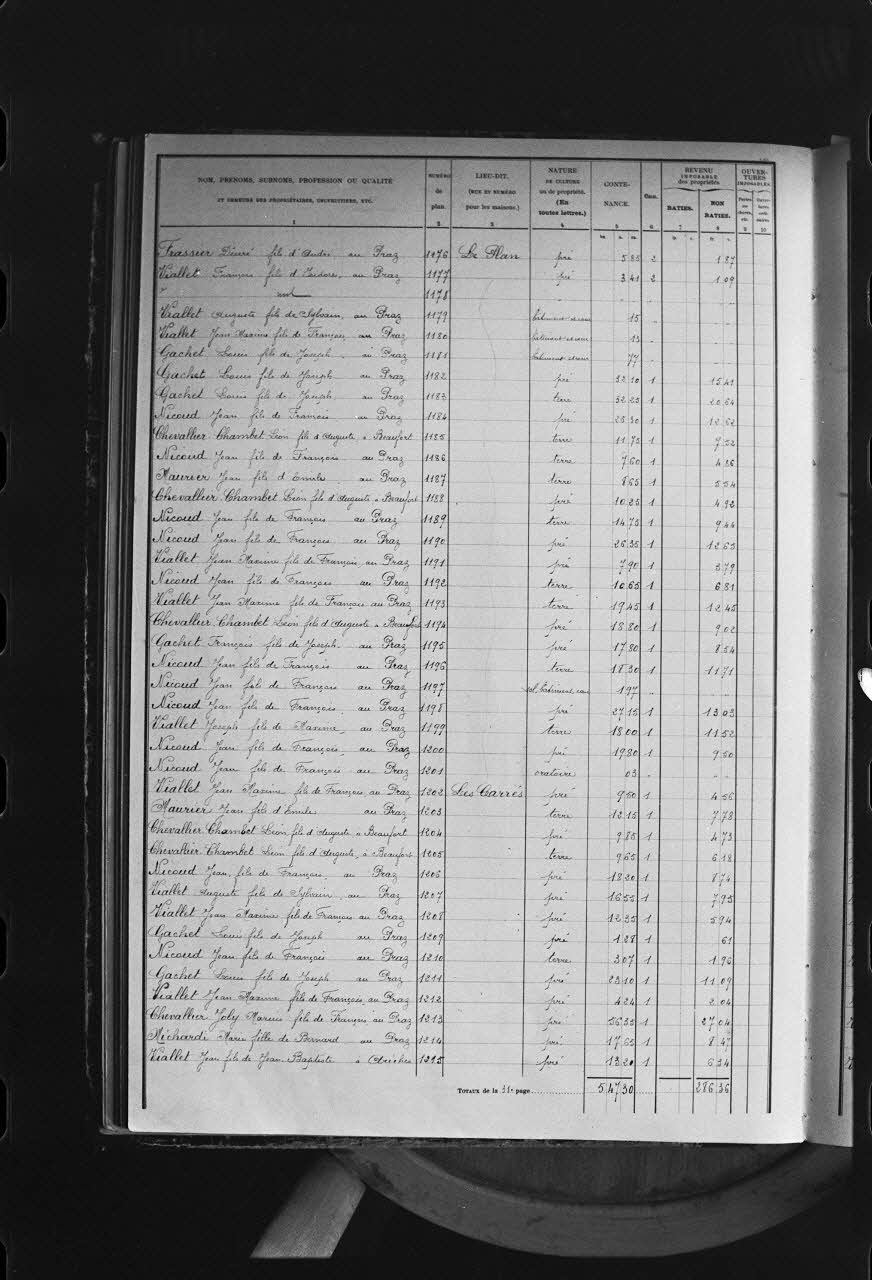 NOM, PRÉNOMS, SURNOMS, PROFESSION OU QUALITÉ
ET DEMEURE DES PROPRIÉTAIRES, USUFRUITIERS, ETC.
1
NUMÉRO de plan.
2
LIEU-DIT.
(RUE ET NUMÉRO pour les maisons.)
3
NATURE DE CULTURE ou de propriété. (En toutes lettres.)
4
CONTENANCE.
5
6
REVENU IMPOSABLE des propriétés
BATIES.
7
NON BATIES.
8
OUVERTURES IMPOSABLES.
9
10
ha. a. ca. fr. c. fr. c.
Frassier Désiré fils d'André au Praz 1176 Le Plan pré 5 85 2 1 87
Viallet François fils d'Isidore, au Praz 1177 pré 3 41 2 1 09
nul 1178
Viallet Auguste fils de Sylvain, au Praz 1179 15
Viallet Jean Maxime fils de François, au Praz 1180 13
Gachet Louis fils de Joseph, au Praz 1181 77
Gachet Louis fils de Joseph au Praz 1182 pré 32 10 1 15 41
Gachet Louis fils de Joseph, au Praz 1183 terre 32 25 1 20 64
Nicoud Jean fils de François au Praz 1184 pré 1
Chevallier-Chambet Léon fils d'Auguste à Beaufort 1185 terre 11 75 1 7 52
Nicoud Jean fils de François, au Praz 1186 terre 7 60 1 4 86
Maurier Jean fils d'Emile, au Praz 1187 terre 8 65 1 5 54
Chevallier-Chambet Léon fils d'Auguste à Beaufort 1188 pré 10 25 1 4 92
Nicoud Jean fils de François au Praz 1189 terre 14 75 1 9 44
Nicoud Jean fils de François au Praz 1190 pré 26 35 1 12 65
Viallet Jean Maxime fils de François, au Praz 1191 pré 7 90 1 3 79
Nicoud Jean fils de François au Praz 1192 terre 10 65 1 6 81
Viallet Jean Maxime fils de François au Praz 1193 terre 19 45 1 12 45
Chevallier-Chambet Léon fils d'Auguste à Beaufort 1194 pré 18 80 1 9 02
Gachet François fils de Joseph, au Praz 1195 pré 17 80 1 8 54
Nicoud Jean fils de François au Praz 1196 terre 18 30 1 11 71
Nicoud Jean fils de François au Praz 1197 sol, bâtiment, cour 1 97
Nicoud Jean fils de François, au Praz 1198 pré 27 15 1 13 03
Viallet Joseph fils de Maxime, au Praz 1199 terre 18 00 1 11 52
Nicoud Jean fils de François au Praz 1200 pré 19 80 1 9 50
Nicoud Jean fils de François au Praz 1201 oratoire 03
Viallet Jean Maxime fils de François, au Praz 1202 Les Carrés pré 9 50 1 4 56
Maurier Jean fils d'Emile au Praz 1203 terre 12 15 1 7 78
Chevallier-Chambet Léon fils d'Auguste, à Beaufort 1204 pré 9 85 1 4 73
Chevallier-Chambet Léon fils d'Auguste, à Beaufort 1205 terre 9 65 1 6 18
Nicoud Jean, fils de François, au Praz 1206 pré 18 20 1 8 74
Viallet Auguste fils de Sylvain, au Praz 1207 pré 16 55 1 7 95
Viallet Jean Maxime fils de François au Praz 1208 pré 12 35 1 5 94
Gachet Louis fils de Joseph au Praz 1209 pré 1 28 1 61
Nicoud Jean fils de François au Praz 1210 terre 3 07 1 1 96
Gachet Louis fils de Joseph au Praz 1211 pré 23 10 1 11 09
Viallet Jean Maxime fils de François, au Praz 1212 pré 4 24 1 2 04
Chevallier Joly Marius fils de François au Praz 1213 pré 56 35 1 27 04
Michardi Marie fille de Bernard au Praz 1214 pré 17 65 1 8 47
Viallet Jean fils de Jean-Baptiste à Arêches 1215 pré 13 20 1 6 34
TOTAUX de la 31e page 5 47 30 286 36